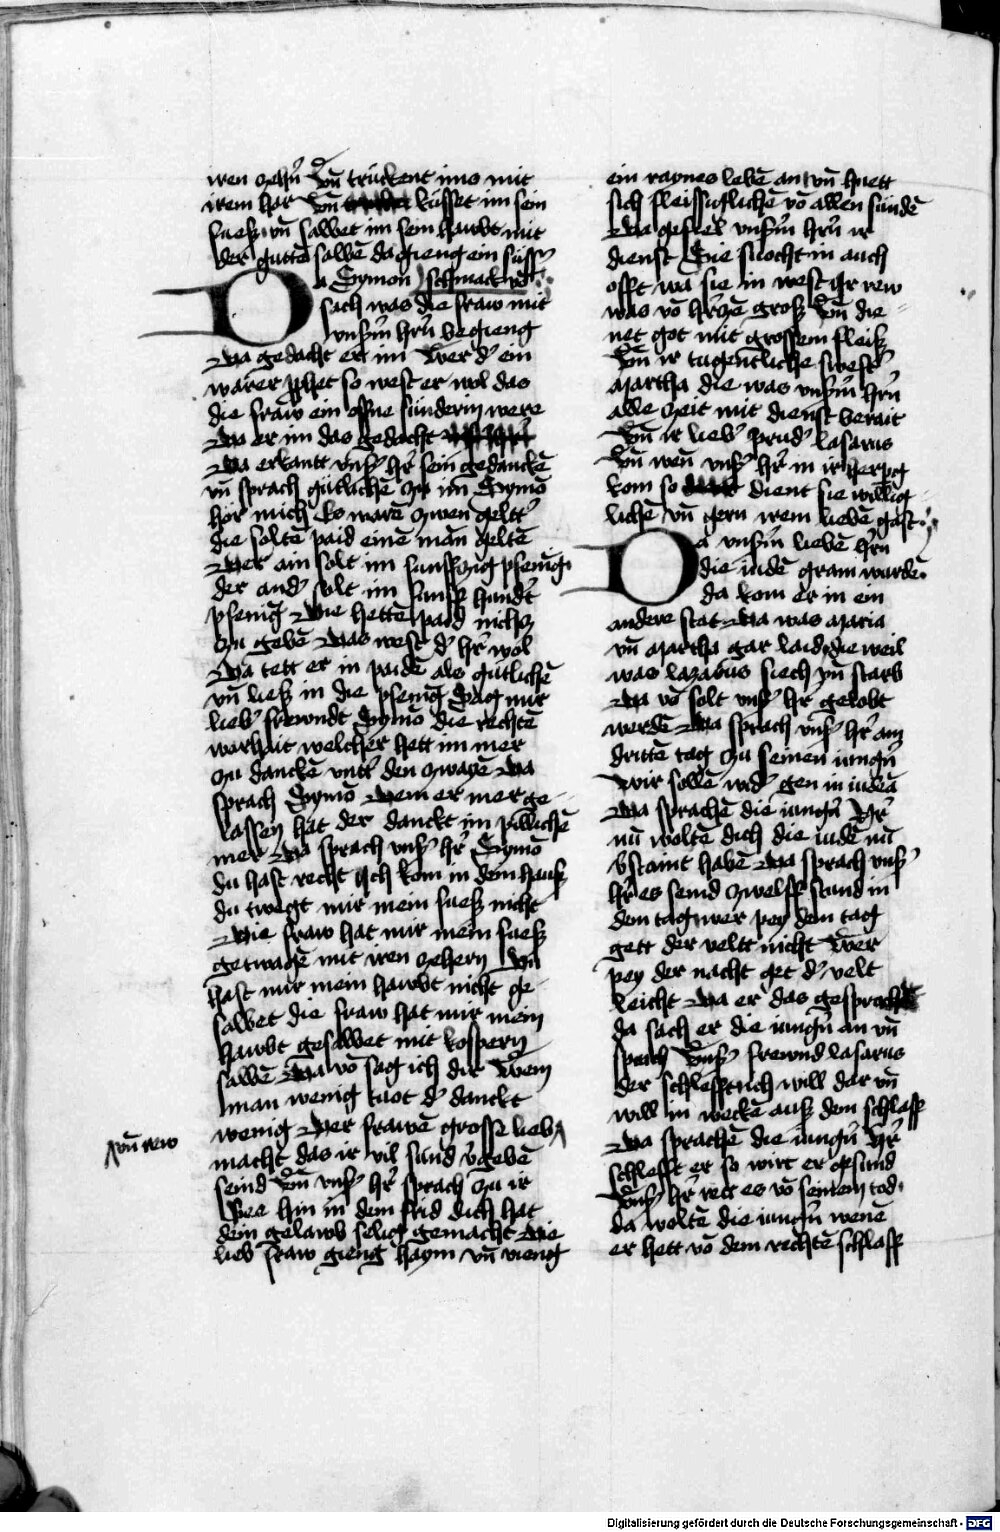 iren zehn̄ Vn̄ truckent ims mit
irem har Vn̄ kusset im sein
fuesz vn̄ salbet im sein hawbt mit
der gutten salbē da gieng ein süsser
Da Symon schmack vō
sach was die fraw mit
vnserm hrn̄ begieng
Da gedacht er im Wer d' ein
warer pphet so west er wol das
die fraw ein offne sunderin were
Da er im das gedacht
Da erkantt vnser hr̄ sein gedanckē
vn̄ sprach gutlichē zu im Symō
hor mich Es warē zwen geltt'
die soltē paid einē man geltē
Der ain solt im funfczig pfenig
der and' solt im funf hundt'
pfenig Die hettē paid nichcz
zu gebē Das west d' hr̄ wol
Da tett er in paidē als gutlichē
vn̄ liesz in die pfenīg Sag mir
lieb' frewndt Symō die rechtē
warhait welcher hett im mer
zu danckē vntt' den zwayē Da
sprach Symō Dem er mer ge-
lassen hat der danckt im pillichē
mer Da sprach vns' hr̄ Symō
du hast recht Ich kom in dein hausz
du twegt mir mein fuesz nicht
Die fraw hat mir mein fuesz
getwagē mit iren zehern Du
hast mir mein hawbt nicht ge-
salbet die fraw hat mir mein
hawbt gesalbet mit kospern
salbē Da vō sag ich dir Wem
man wenig tuot d' danckt
wenig Der frawē grosse lieb
vn̄ rew
macht das ir vil sund v'gebē
seind Vn̄ vns' hr̄ sprach zu ir
Gee hin in dem frid dich hat
dein gelawb selig gemacht Die
lieb fraw gieng haym vn̄ vieng
ein raynes lebē an vn̄ huett
sich fleissiclichē vō allen sundē
Da gefiel vnserm hrn̄ ir
dienst Sie suocht in auch
offt wa sie in west Ir rew
was vō herczē grosz Vn̄ die-
net got mit grossem fleisz
Vn̄ ir tugentliche swest'
Martha die was vnserm hrn̄
alle zeit mit dienst berait
Vn̄ ir lieb' prud' lasarus
Vn̄ wen vns' hr̄ in ir herpeg
kom so dient sie willig-
lichē vn̄ gern irem liebē gast
Da vnserm liebē hrn̄
die iudē gram wurdē
da kom er in ein
andere stat Da was Maria
vn̄ Martha gar laid die weil
was lazarus siech vn̄ starb
Da vō solt vns' hr̄ gelobt
werdē Da sprach vns' hr̄ am
drittē tag zu seinen iungn̄
Wir sollē wid' gen in iudēa
Da sprachē die iungn̄ Hr̄
nū woltē dich die iudē nū
v'staint habē Da sprach vns'
hr̄ es seind zwelff stund in
dem tag wer pey dem tag
gett der veltt nicht Wer
pey der nacht get d' velt
leicht Da er das gesprach
da sach er die iungn̄ an vn̄
sprach Vns' frewnd lasarus
der schlefft ich will dar vn̄
will in weckē ausz dem schlaff
Da sprachē die iungn̄ Hr̄
schlefft er so wirt er gesund
Vns' hr̄ rett es vō seinem tod
da woltē die iungn̄ wenē
er hett vō dem rechtē schlaff
Digitalisierung gefördert durch die Deutsche Forschungsgemeinschaft - DFG